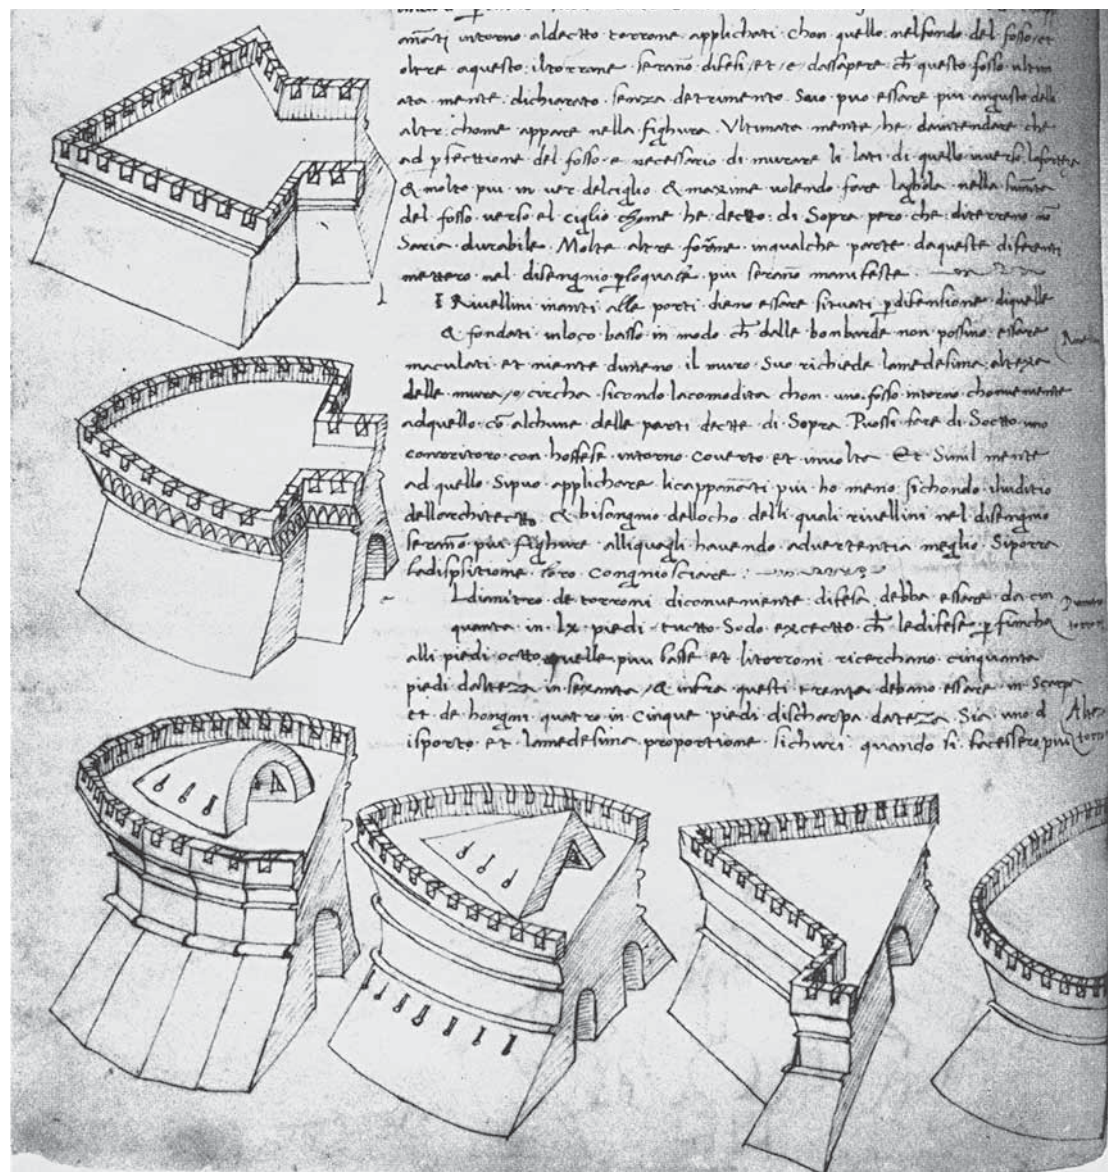 amati intorno aldecto torrone applichati chon quello nelfondo del fosso et
oltre aquesto iltorrone serano difesi et e dassapere ch questo fosso ultim
ata mente dichiarato senza detrimento Suo puo essare piu angusto delli
altri chome appare nella fighura. Ultimata mente he daintendare che
ad pfectione del fosso e necessario di murare li lati di quello inverso lafortezza
& molto piu in ver delciglio & maxime volendo fare laghola nella summita
del fosso verso el ciglio chome he decto di Sopra pero che diterreno no
Saria durabile. Molte altre forme inqualche parte daqueste diferenti
mettero nel disengnio ploquale piu serano manifeste
I Rivellini inanti alle porti dieno essare situati pdifensione diquelle
& fondati inloco basso in modo ch dalle bombarde non possino essare
maculati et niente dimeno il muro Suo richiede lamedesima alteza
delle mura o circha sicondo lacomodita chon uno fosso intorno chonveniente
adquello co alchune delle parti decte di Sopra. Puossi fare di Socto uno
corritoro con hoffese intorno coverto et involta Et Simil mente
ad quello Sipuo applichare licappanati piu ho meno sichondo iluditio
dellarchitecto & bisongnio dellocho delli quali rivellini nel disengnio
serano piu fighure alliquagli havendo advertentia meglio Siporra
ladispsitione loro congniosciare
Ldiamitro de torroni diconveniente difesa debba essare da cin
quanta in lx piedi tucto Sodo excecto ch ledifese p finche
alli piedi octo quelle piu basse et litorroni ricerchano cinquanta
piedi dalteza in sexanta & infra questi trenta debano essare in Scarpa
et de hongni quatro in cinque piedi discharpa dateza Sia uno d
isporto et lamedesima proportione sichuri quando si facessero piu